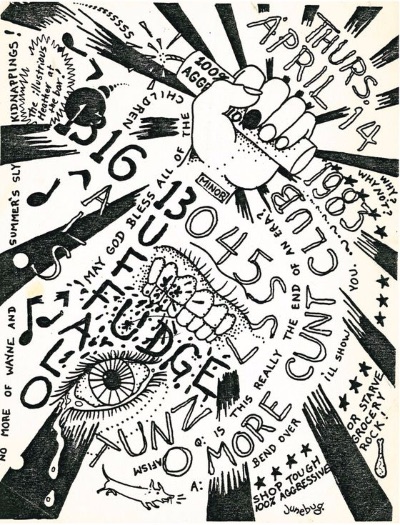 THURS.
A. APRIL 14
1983
KIDNAPPINGS!
The illustrious
Mother of
the Year!
SUMMER'S SLY
NO MORE OF WAYNE AND
100%
AGGR
MAY GOD BLESS ALL OF THE
CHILDREN
MINOR
1316
13
045
BUFFALO
FUDGE
TUNZ
NO MORE CUNT CLUB
Q: IS THIS REALLY THE END OF AN ERA?
A:
BEND OVER
I'LL SHOW YOU.
WHY NOT?
OR STARVE
GROCERY
ROCK!
SHOP TOUGH
100% AGGRESSIVE
Junebug